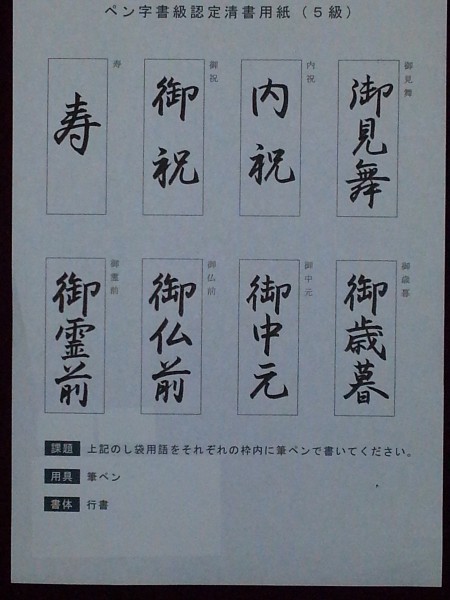 ペン字書級認定清書用紙(5級)
御見舞
御見舞
内祝
内祝
御祝
御祝
寿
寿
御歳暮
御歳暮
御中元
御中元
御仏前
御仏前
御霊前
御霊前
課題 上記のし袋用語をそれぞれの枠内に筆ペンで書いてください。
用具 筆ペン
書体 行書